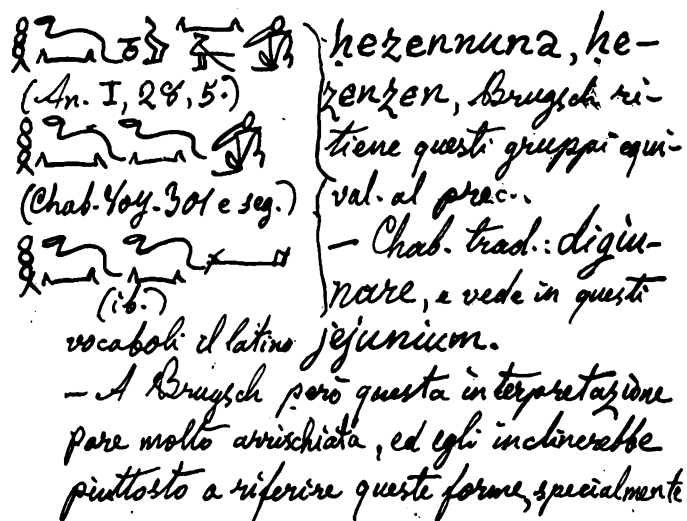 ḥezennuna, ḥe-
(An. I, 28, 5.)
zenzen, Brugsch ri-
tiene questi gruppi equi-
(Chab. Yoy. 301 e seg.)
val. al prec..
— Chab. trad.: digiu-
nare, e vede in questi
(ib.)
vocaboli il latino jejunium.
— A Brugsch però questa interpretazione
pare molto arrischiata, ed egli inclinerebbe
piuttosto a riferire queste forme, specialmente